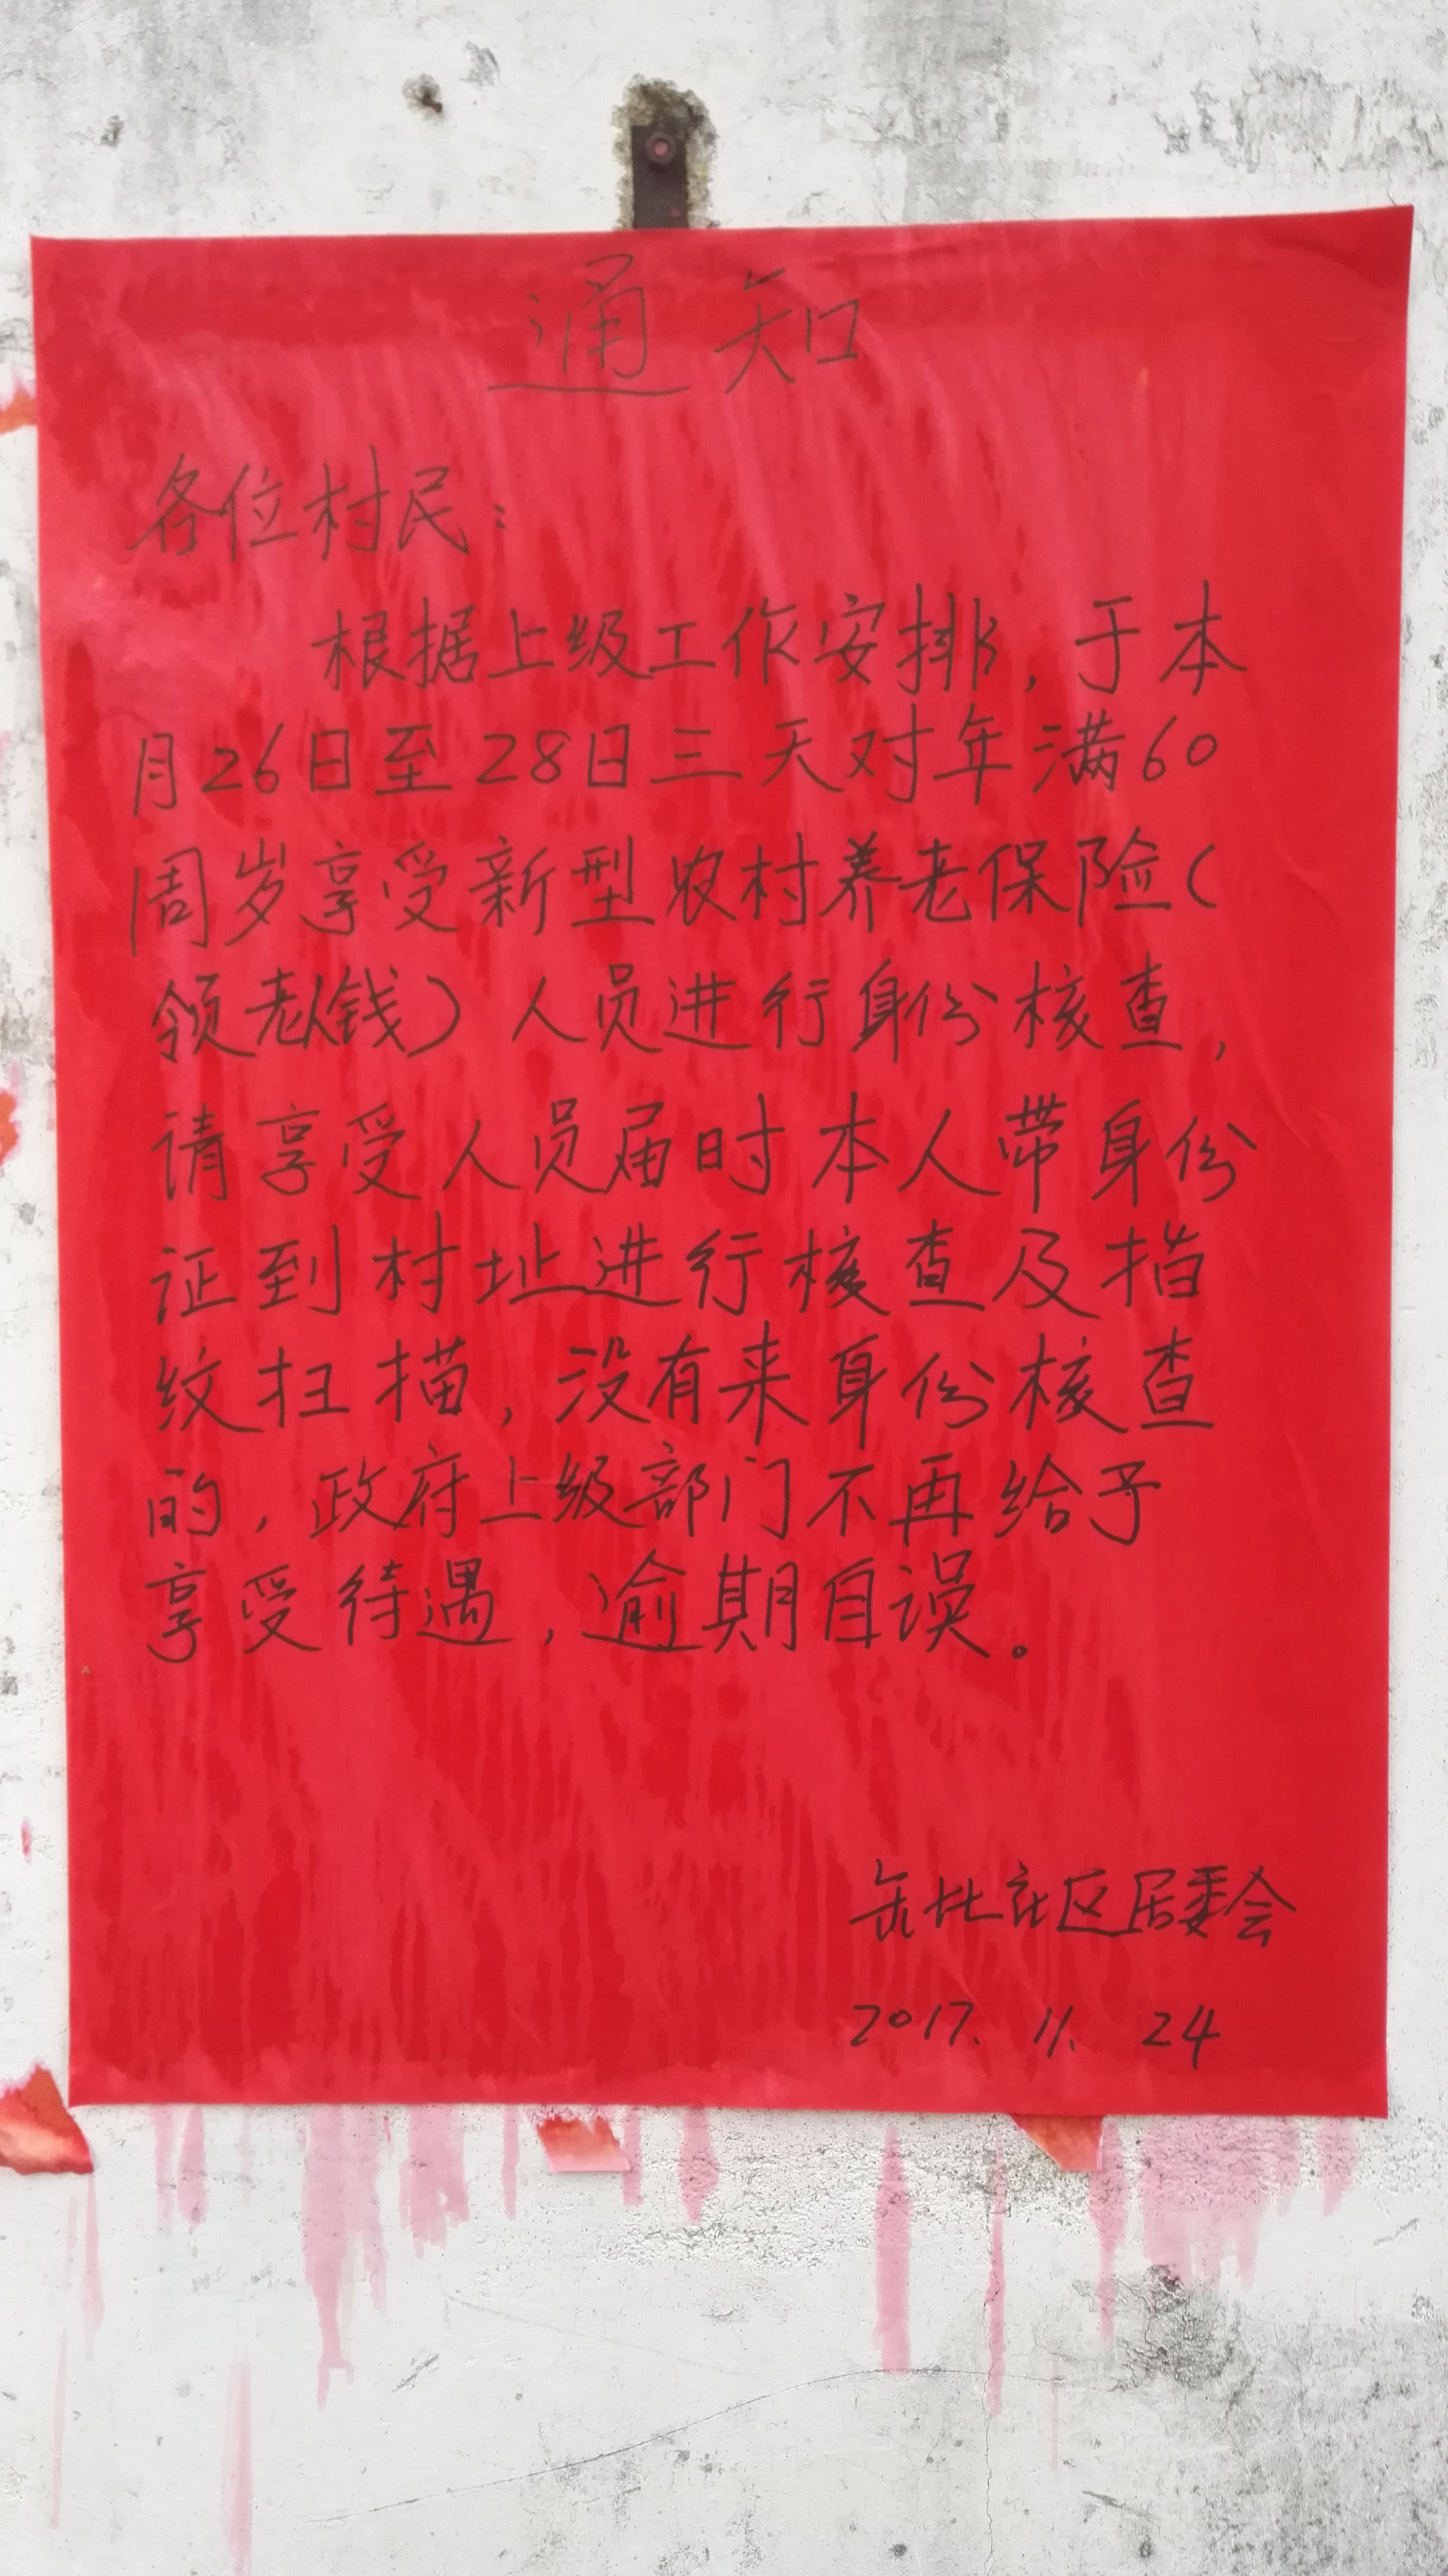 通知
各位村民：
根据上级工作安排，于本
月26日至28日三天对年满60
周岁享受新型农村养老保险（
领老人钱）人员进行身份核查，
请享受人员届时本人带身份
证到村址进行核查及指
纹扫描，没有来身份核查
的，政府上级部门不再给予
享受待遇，逾期自误。
社区居委会
2017.11.24